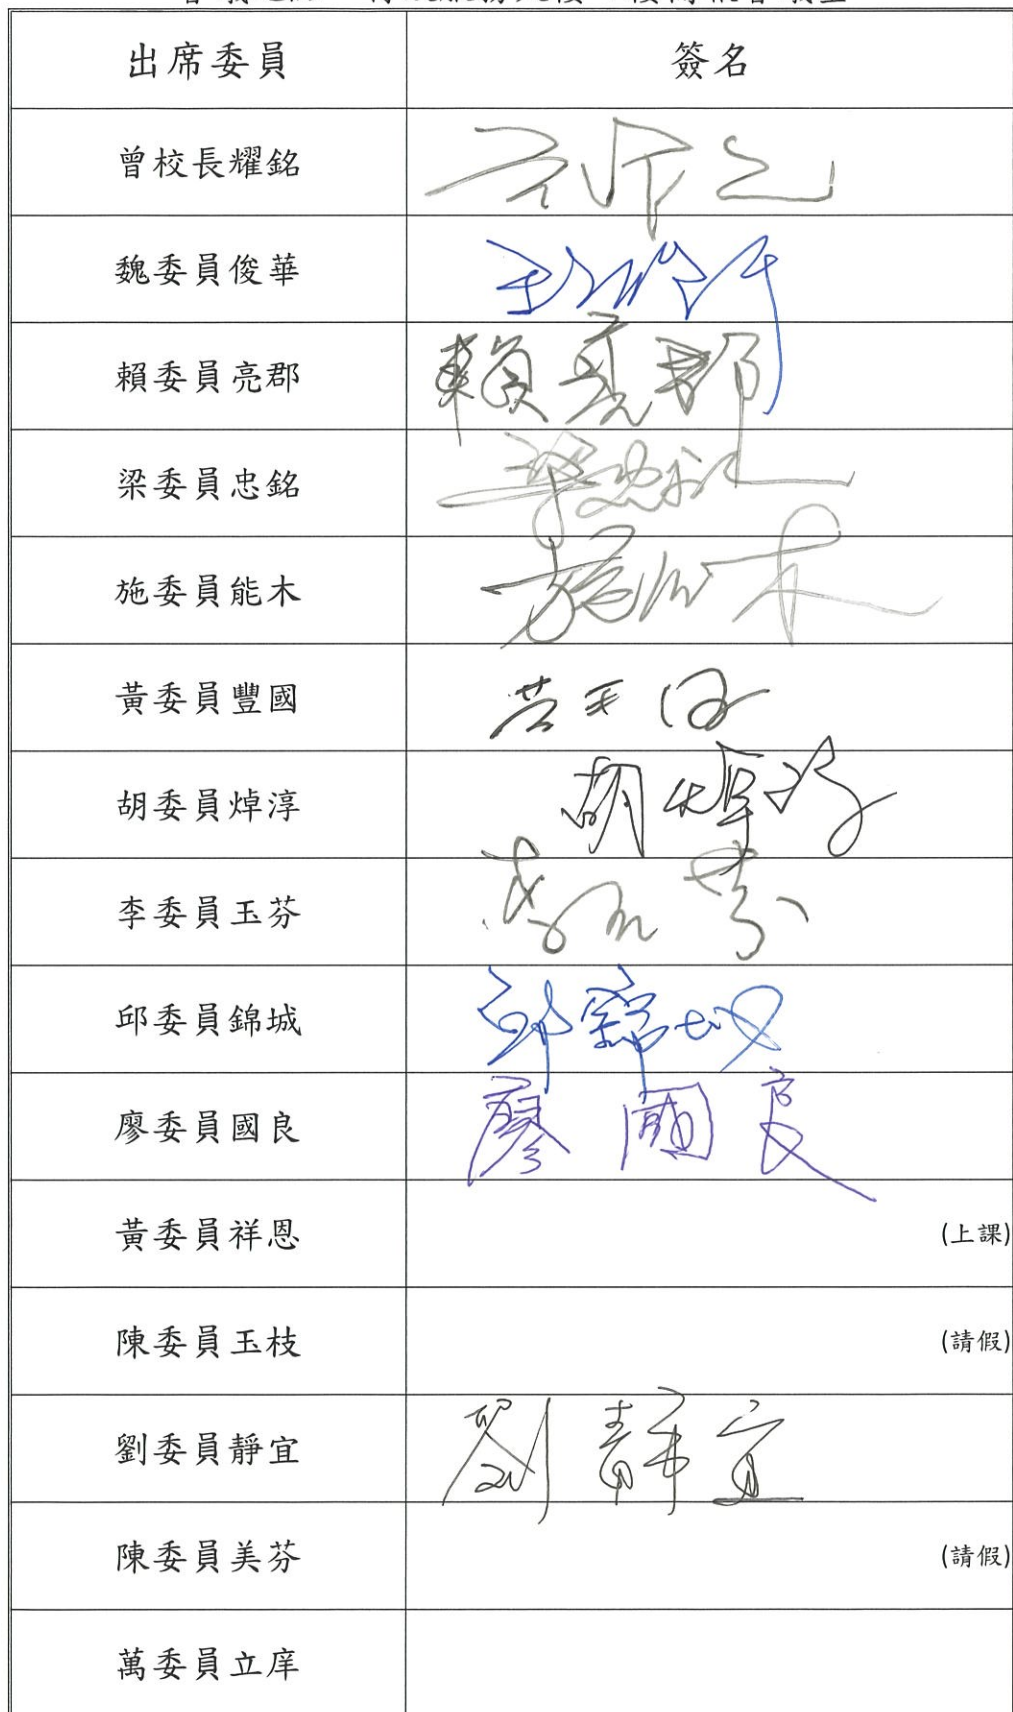 出席委員 簽名
曾校長耀銘
魏委員俊華
賴委員亮郡 賴亮郡
梁委員忠銘 梁忠銘
施委員能木 施能木
黃委員豐國
胡委員焯淳 胡焯淳
李委員玉芬 李玉芬
邱委員錦城 邱錦城
廖委員國良 廖國良
黃委員祥恩 (上課)
陳委員玉枝 (請假)
劉委員靜宜 劉靜宜
陳委員美芬 (請假)
萬委員立庠